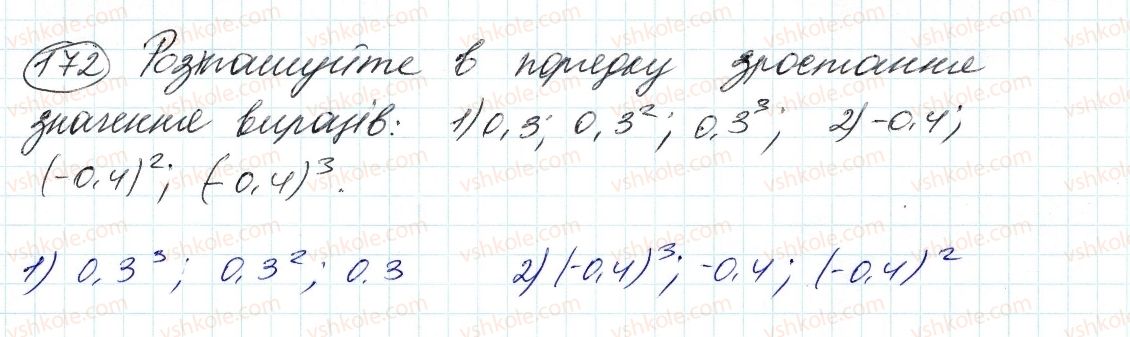 172 Розташуйте в порядку зростання
значення виразів: 1) 0,3; 0,3²; 0,3³; 2) -0,4;
(-0,4)²; (-0,4)³.
1) 0,3³; 0,3²; 0,3 2) (-0,4)³; -0,4; (-0,4)²